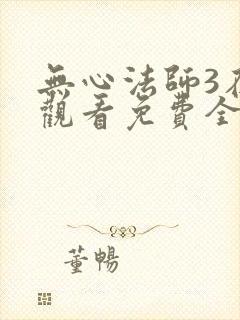 無心法師3
觀看免費全
董暢